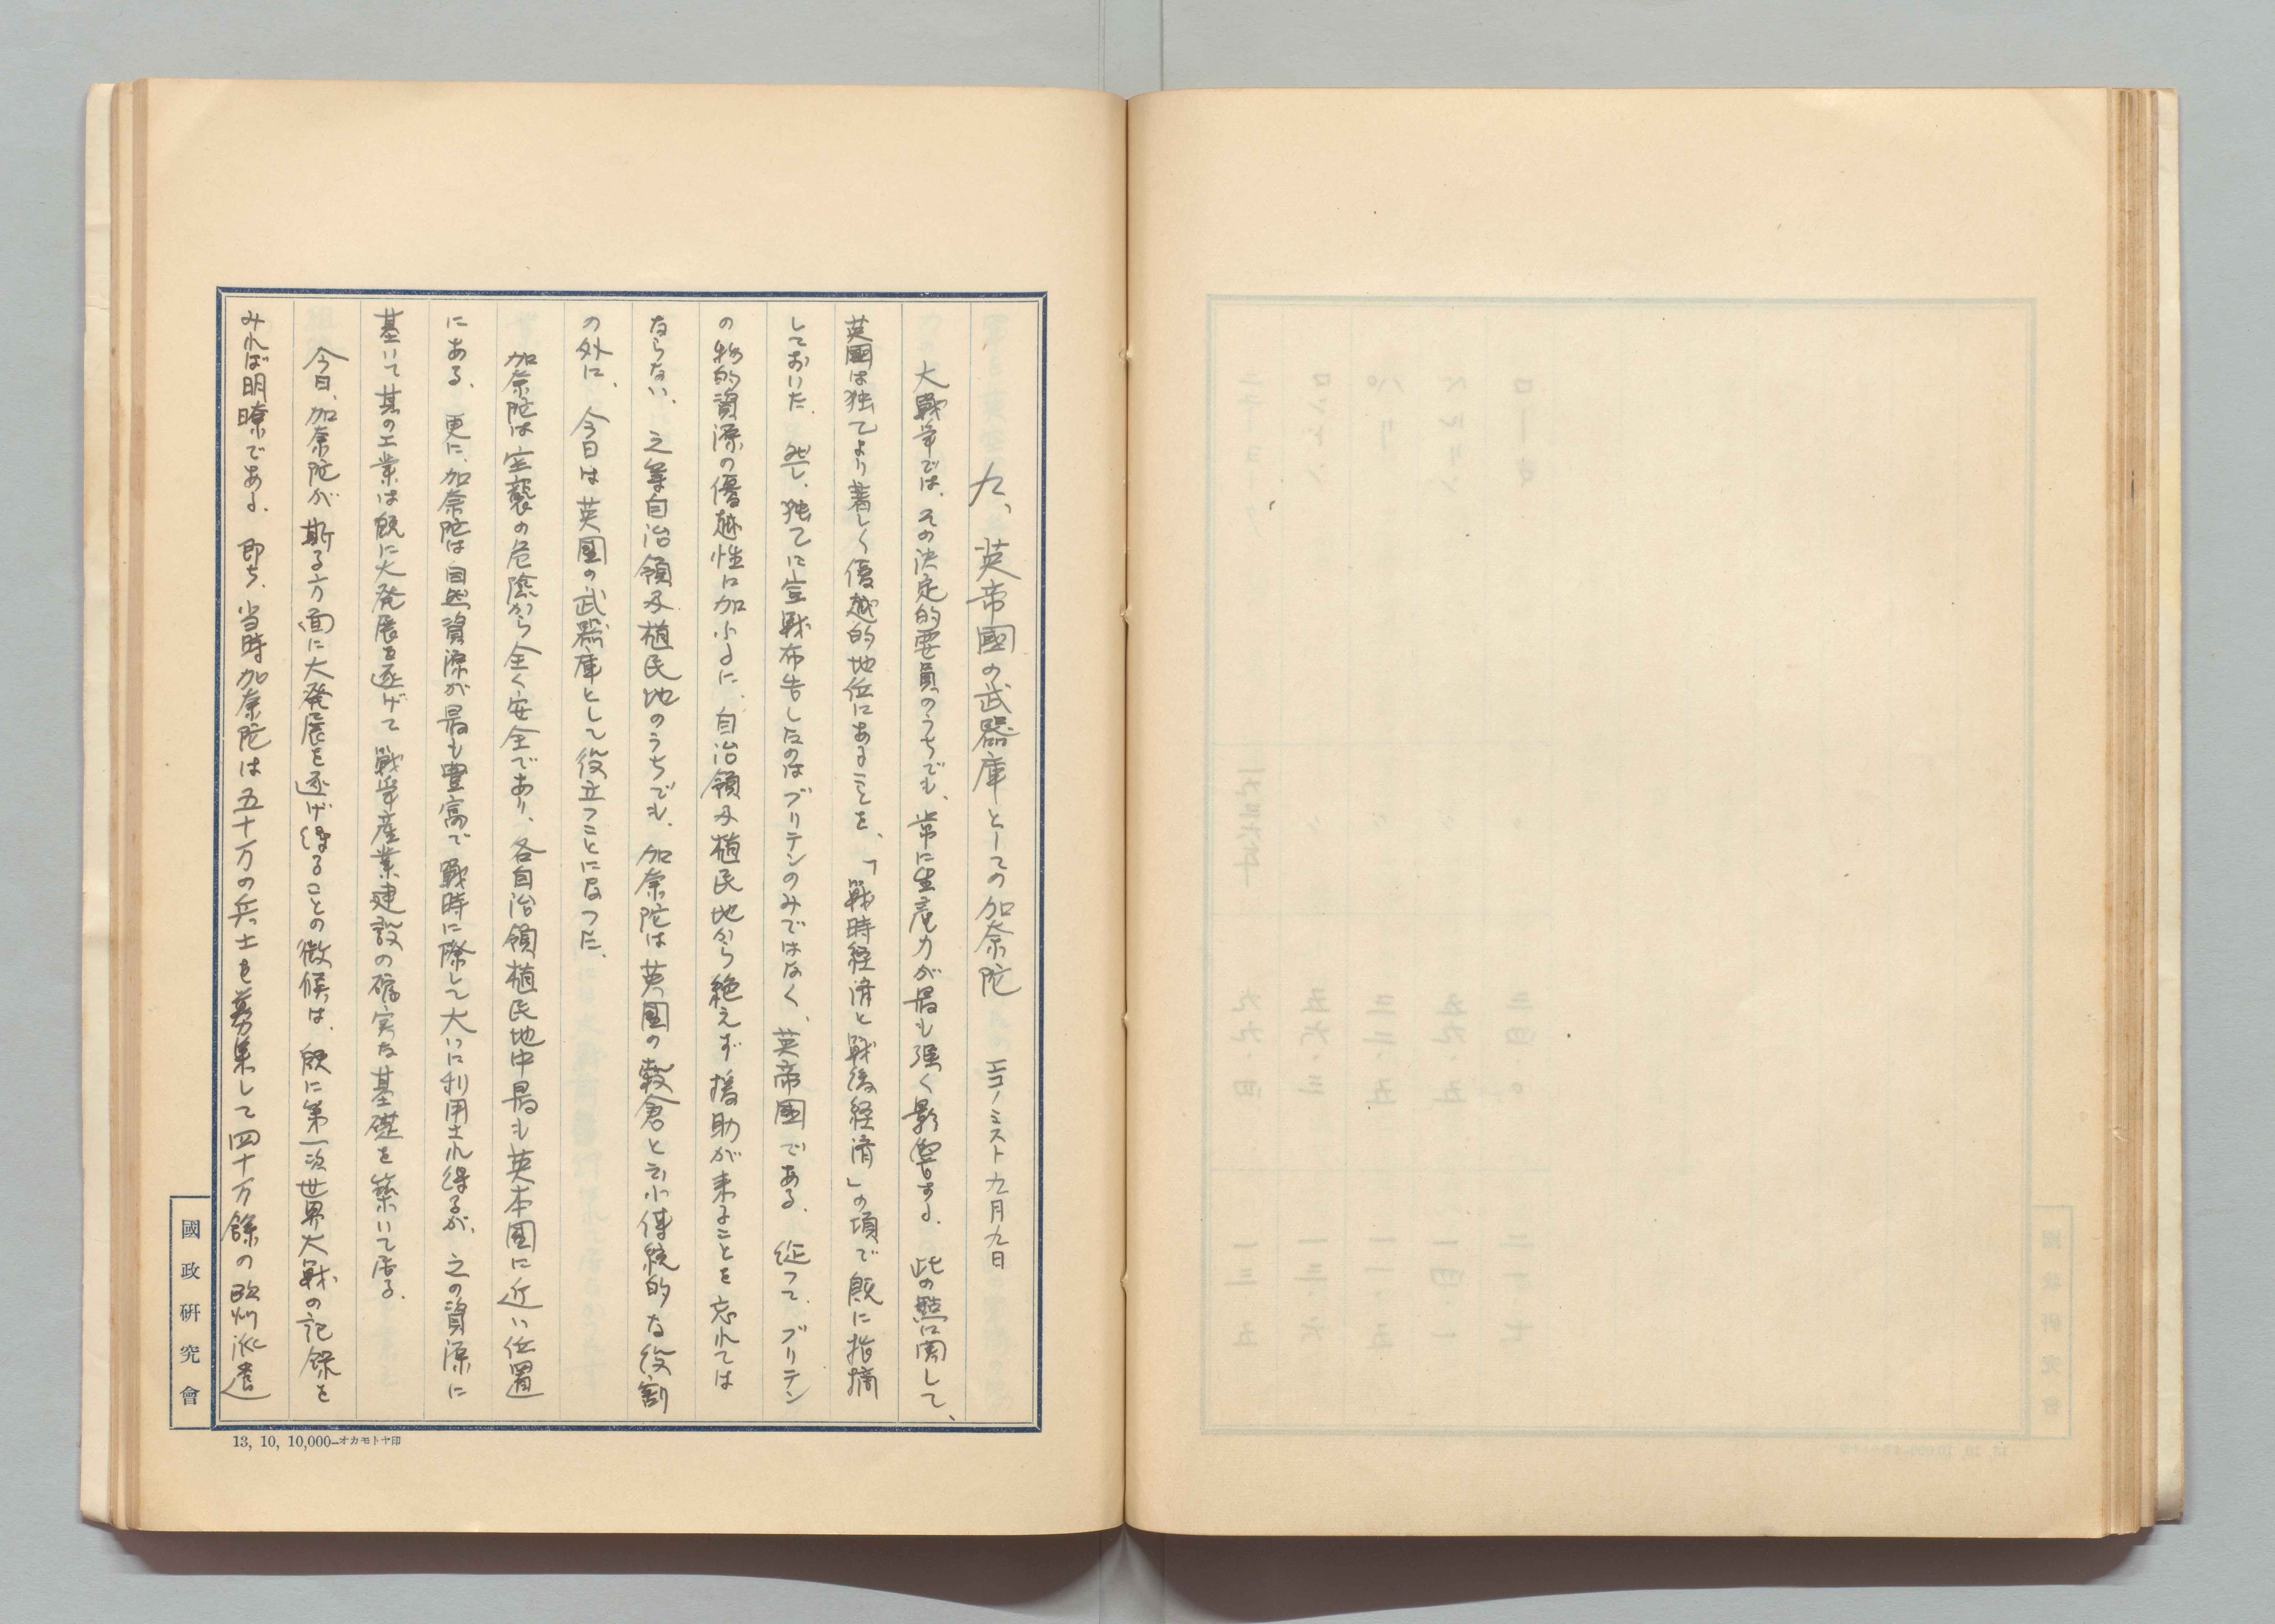 九、英帝國の武器庫としての加奈陀　エコノミスト九月九日
大戰爭では、その決定的要員のうちでも、常に生産力が最も強く影響する。此の點に関して、
英國は独乙より著しく優越的地位にあることを、「戰時経済と戰後経済」の項で既に指摘
しておいた。然し、独乙に宣戰布告したのはブリテンのみではなく、英帝國である。従つて、ブリテン
の物的資源の優越性に加ふるに、自治領及植民地から絶えず援助が来ることを忘れては
ならない。之等自治領及植民地のうちでも、加奈陀は英國の穀倉と云ふ傳統的な役割
の外に、今日は英國の武器庫として役立つことになつた。
加奈陀は空襲の危險から全く安全であり、各自治領植民地中最も英本國に近い位置
にある。更に、加奈陀は自然資源が最も豊富で戰時に際して大いに利用され得るが、之の資源に
基いて其の工業は既に大発展を遂げて戰爭産業建設の確実な基礎を築いて居る。
今日、加奈陀が斯る方面に大発展を遂げ得ることの徴候は、既に第一次世界大戰の記録を
みれば明瞭である。即ち、当時加奈陀は五十万の兵士を募集して四十万餘の欧州派遣
國政研究會
13, 10, 10,000—オカモトヤ印